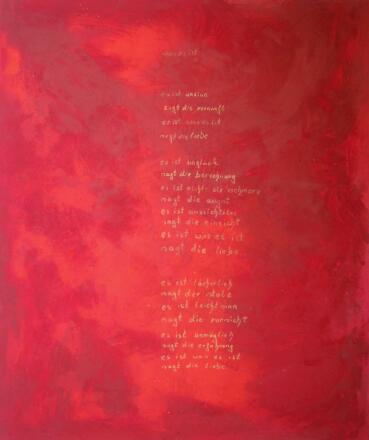 was es ist
es ist unsinn
sagt die vernunft
es ist was es ist
sagt die liebe
es ist unglück
sagt die berechnung
es ist nichts als schmerz
sagt die angst
es ist aussichtslos
sagt die einsicht
es ist was es ist
sagt die liebe
es ist lächerlich
sagt der stolz
es ist leichtsinn
sagt die vorsicht
es ist unmöglich
sagt die erfahrung
es ist was es ist
sagt die liebe